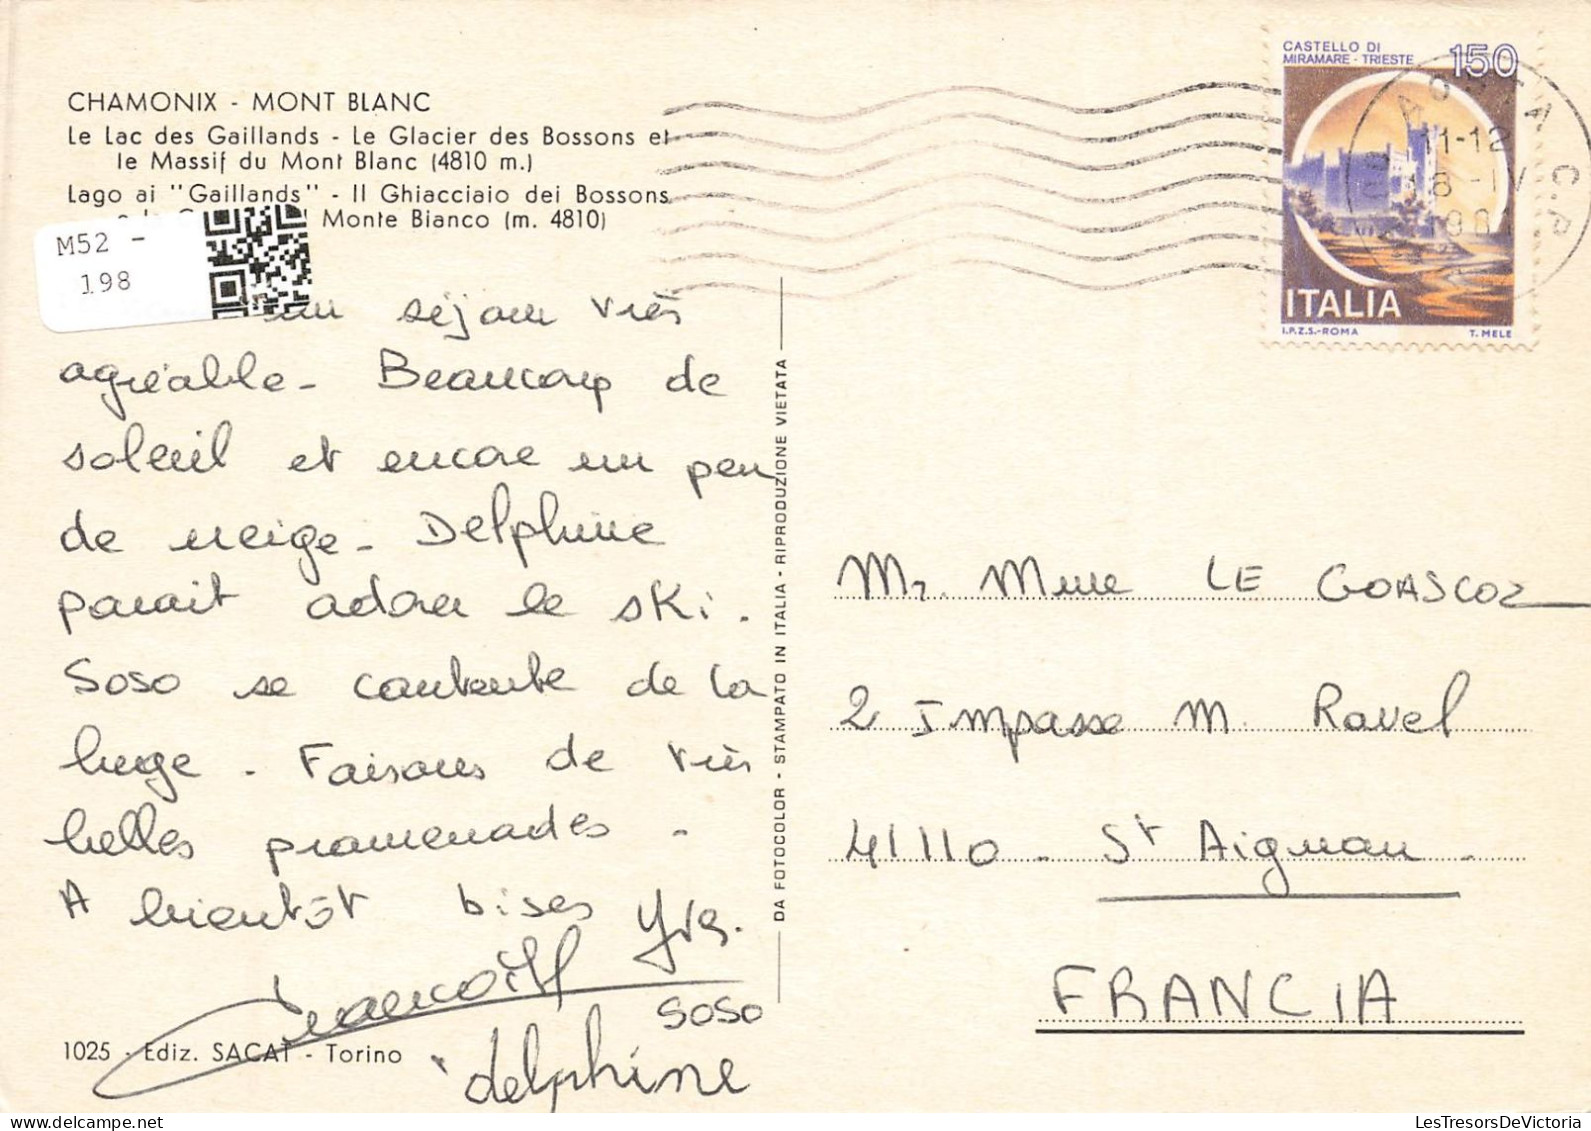 CHAMONIX - MONT BLANC
Le Lac des Gaillands - Le Glacier des Bossons et
le Massif du Mont Blanc (4810 m.)
Lago ai "Gaillands" - Il Ghiacciaio dei Bossons
Monte Bianco (m. 4810)
M52 -
198
un séjour très
agréable - Beaucoup de
soleil et encore un peu
de neige - Delphine
parait adorer le ski.
Soso se contente de la
luge - Faisons de très
belles promenades -
A bientôt bises Yve.
Soso
delphine
1025 - Ediz. SACAT - Torino
DA FOTOCOLOR - STAMPATO IN ITALIA - RIPRODUZIONE VIETATA
CASTELLO DI
MIRAMARE - TRIESTE
150
ITALIA
I.P.Z.S.-ROMA
T. MELE
AOSTA C.P
11-12
8 - IV
1981
Mr. Mme LE GOASCOZ
2 Impasse M. Ravel
41110 - St Aignan -
FRANCIA
LesTresorsDeVictoria